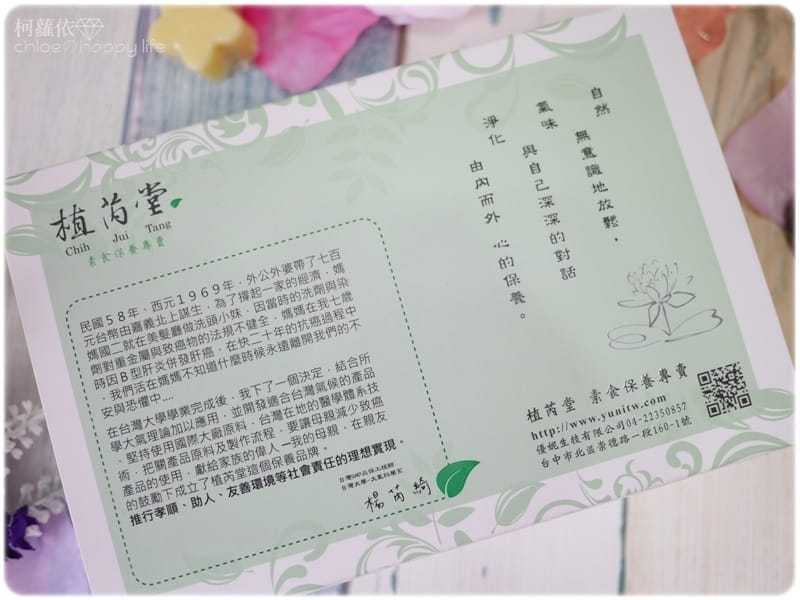 柯蘿依
chloeのhappy life
自然 無意識地放鬆，
氣味 與自己深深的對話
淨化 由內而外 心的保養。
植芮堂
Chih Jui Tang
素食保養專賣
民國58年，西元1969年，外公外婆帶了七百
元台幣由嘉義北上謀生，為了撐起一家的經濟，媽
媽國二就在美髮廳做洗頭小妹，因當時的洗劑與染
劑對重金屬與致癌物的法規不健全，媽媽在我七歲
時因B型肝炎併發肝癌，在快二十年的抗癌過程中
，我們活在媽媽不知道什麼時候永遠離開我們的不
安與恐懼中....
在台灣大學學業完成後，我下了一個決定，結合所
學大氣理論加以應用，並開發適合台灣氣候的產品
，堅持使用國際大廠原料，台灣在地的醫學體系技
術，把關產品原料及製作流程，要讓母親減少致癌
產品的使用，獻給家族的偉人—我的母親，在親友
的鼓勵下成立了植芮堂這個保養品牌。
推行孝順、助人、友善環境等社會責任的理想實現。
台灣GMP品保工程師
台灣大學-大氣科學系
楊芮綺
植芮堂 素食保養專賣
http://www.yunitw.com
優妮生技有限公司04-22350857
台中市北區崇德路一段160-1號